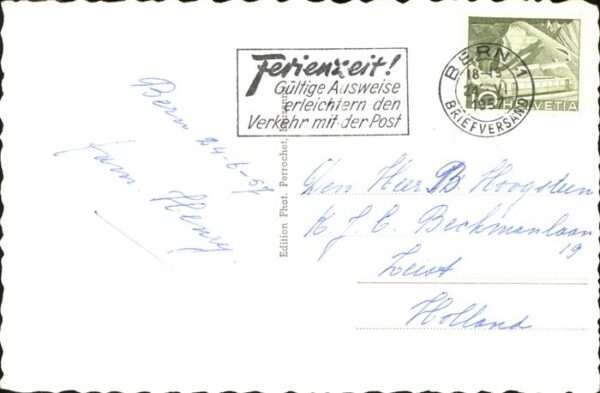 Ferienzeit!
Gültige Ausweise
erleichtern den
Verkehr mit der Post
BERN 1
18
24. VI
1957
BRIEFVERSAND
HELVETIA
Bern 24-6-57
Fam. Henry
Edition Phot. Perrochet,
Den Heer B Hoogsteen
K J. C. Beckmanlaan
19
Zeist
Holland